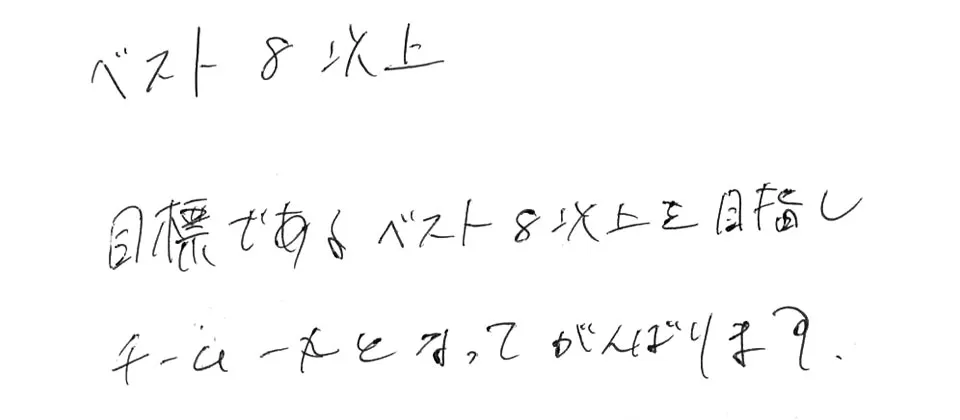 ベスト8以上
目標であるベスト8以上を目指し
チーム一丸となってがんばります.